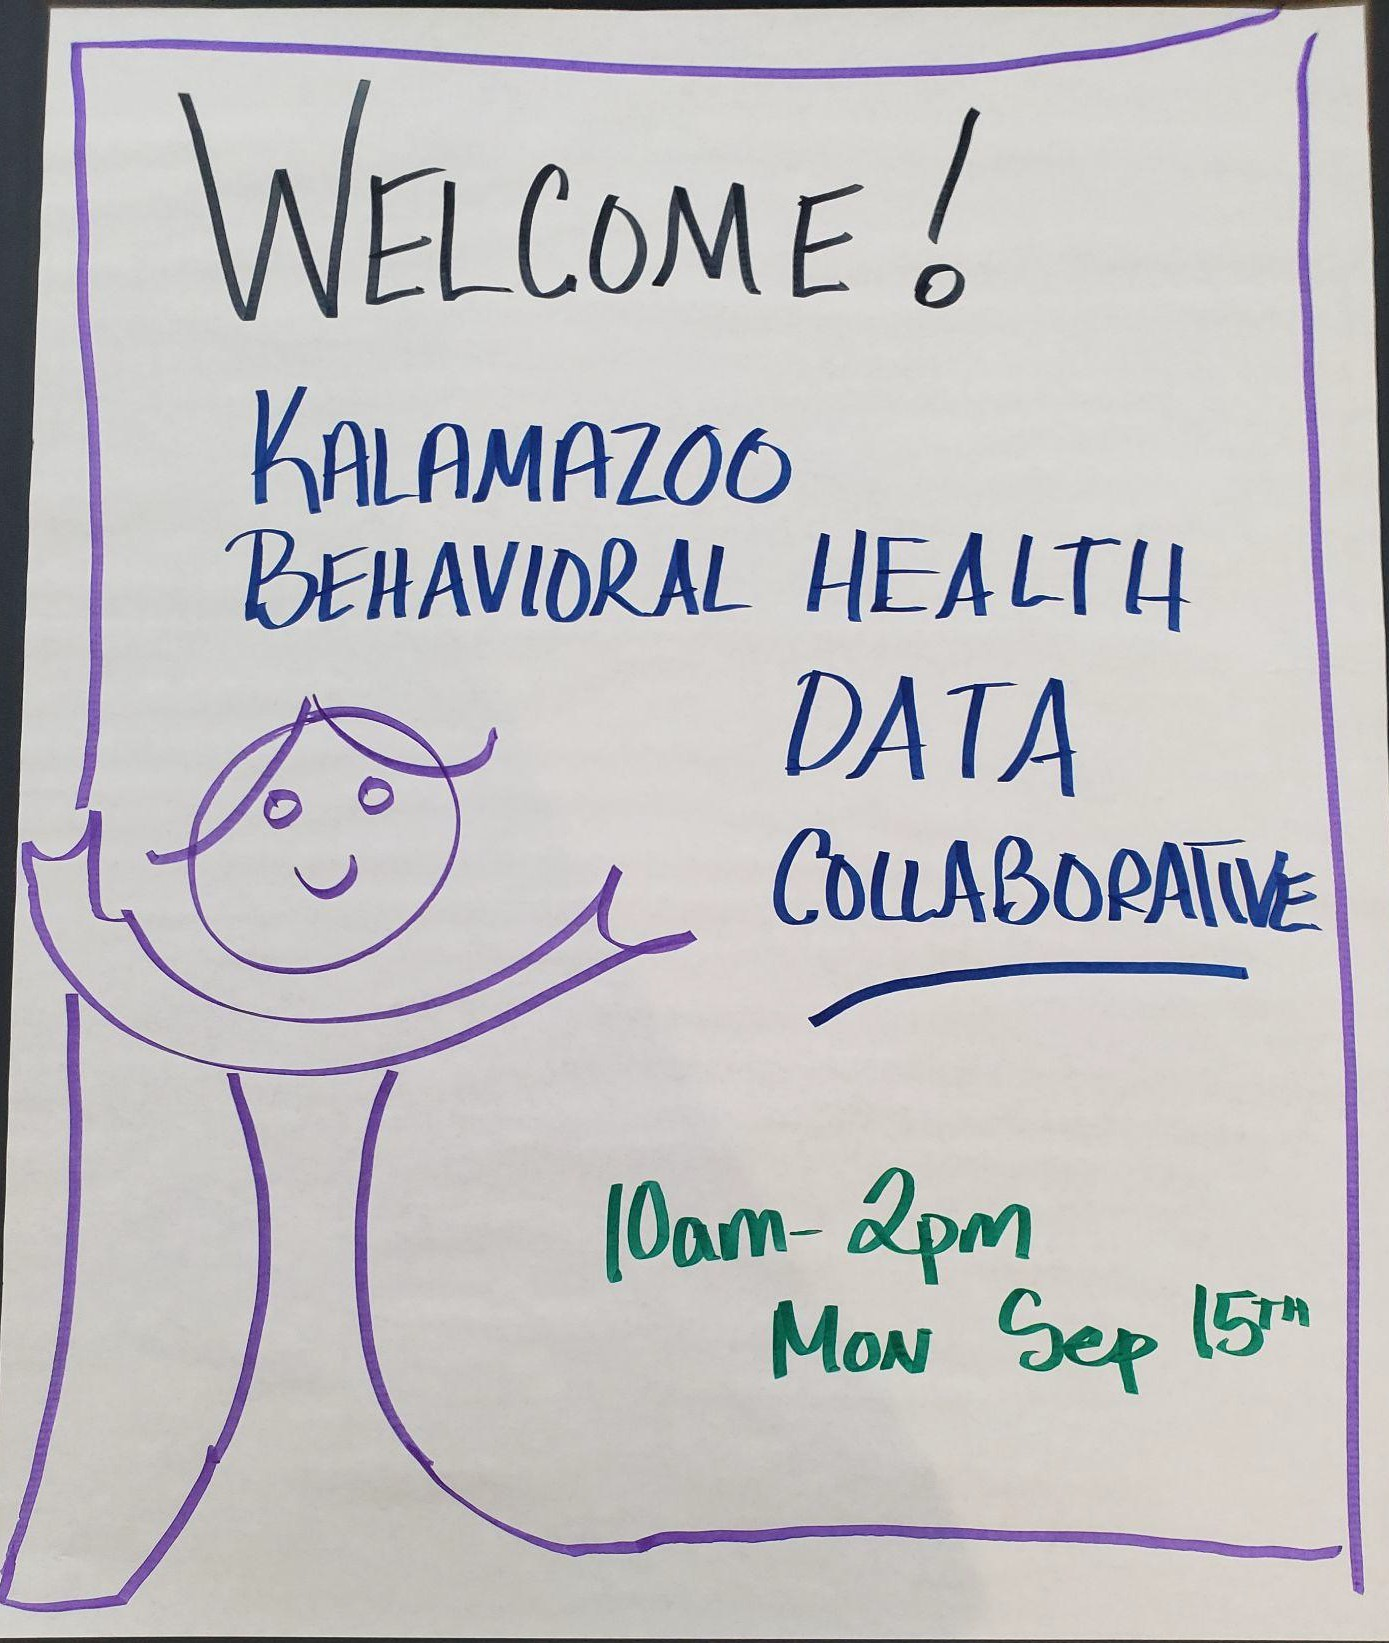 WELCOME!
KALAMAZOO
BEHAVIORAL HEALTH
DATA
COLLABORATIVE
10am-2pm
MON Sep 15TH